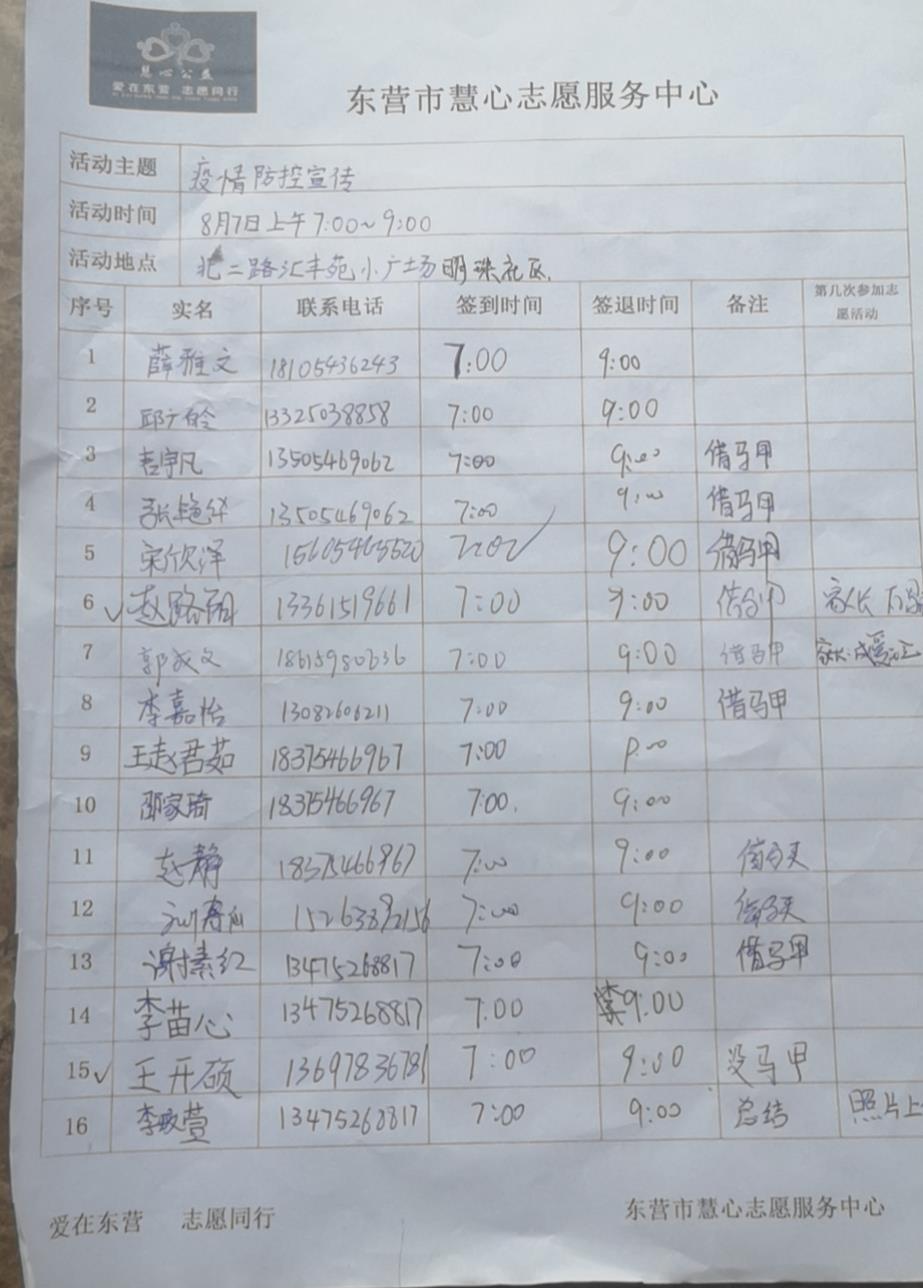 慧心公益
爱在东营 志愿同行
东营市慧心志愿服务中心
活动主题 疫情防控宣传
活动时间 8月7日上午7:00~9:00
活动地点 北二路汇丰苑小广场明珠社区.
序号 实名 联系电话 签到时间 签退时间 备注 第几次参加志愿活动
1 薛雅文 18105436243 7:00 9:00
2 邱广龄 13325038858 7:00 9:00
3 宇凡 13505469062 7:00 9:00 借马甲
4 张艳华 13505469062 7:00 9:00 借马甲
5 宋欣泽 7:00 9:00 借马甲
6 赵路 13361519661 7:00 9:00 借马甲 家长
7 郭成文 7:00 9:00 借马甲 家长
8 李嘉怡 13082606211 7:00 9:00 借马甲
9 王赵君茹 18375466967 7:00
10 邵家琦 18375466967 7:00. 9:00
11 赵静 18375466967 7:00 9:00
12 15263892156 7:00 9:00
13 谢素红 13475268817 7:00 9:00 借马甲
14 李苗心 13475268817 7:00 9:00
15 王开硕 7:00 9:00 没马甲
16 李敏萱 13475268817 7:00 9:00 总结 照片上
爱在东营 志愿同行 东营市慧心志愿服务中心